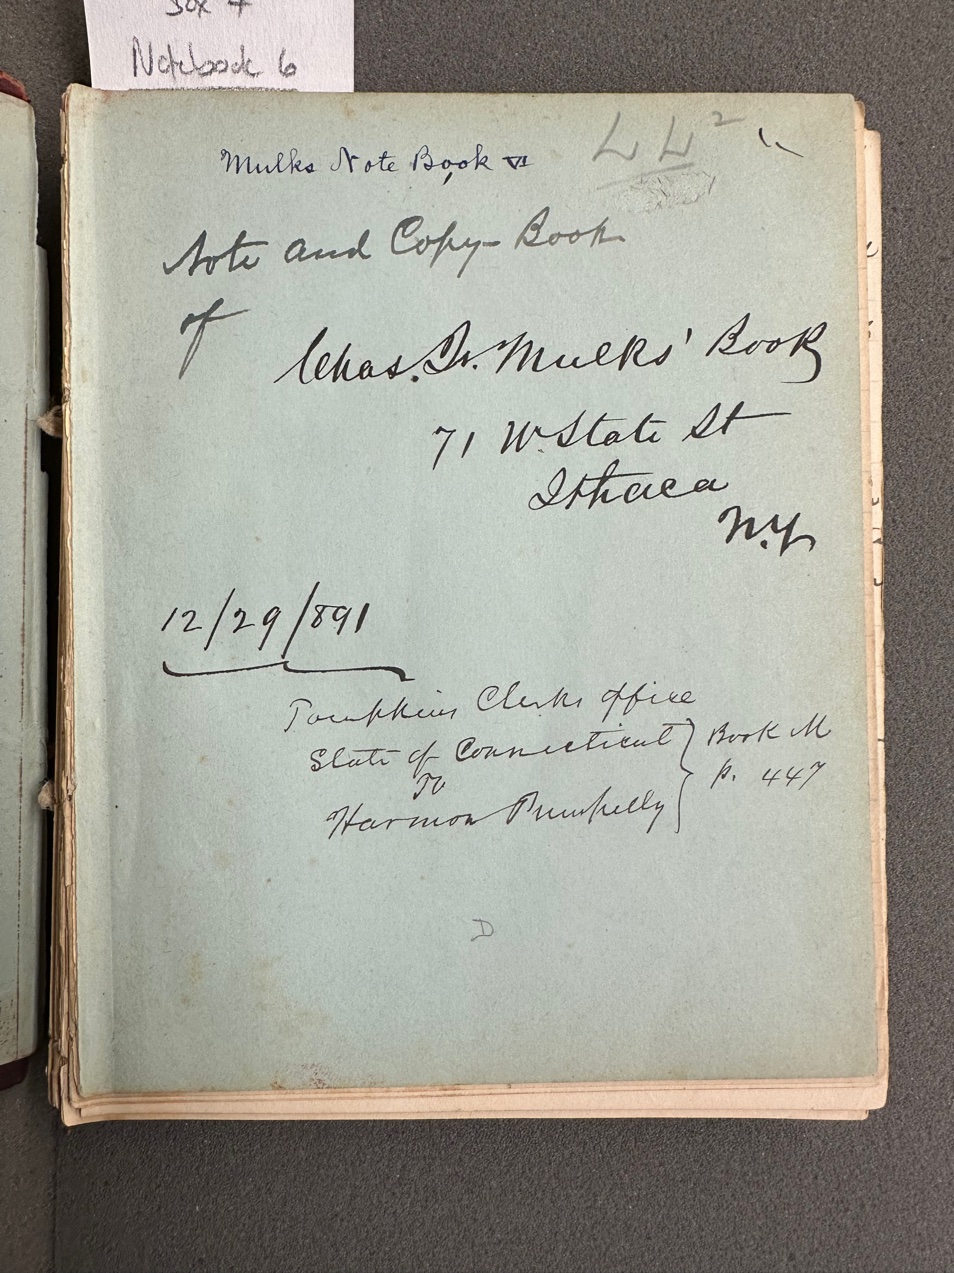 Box 4
Notebook 6
Mulks Note Book VI
Note and Copy-Book
of
Chas. F. Mulks' Book
71 W. State St
Ithaca
N.Y.
12/29/891
Tompkins Clerks office
State of Connecticut } Book M
To
Harmon Pumpelly } p. 447
D